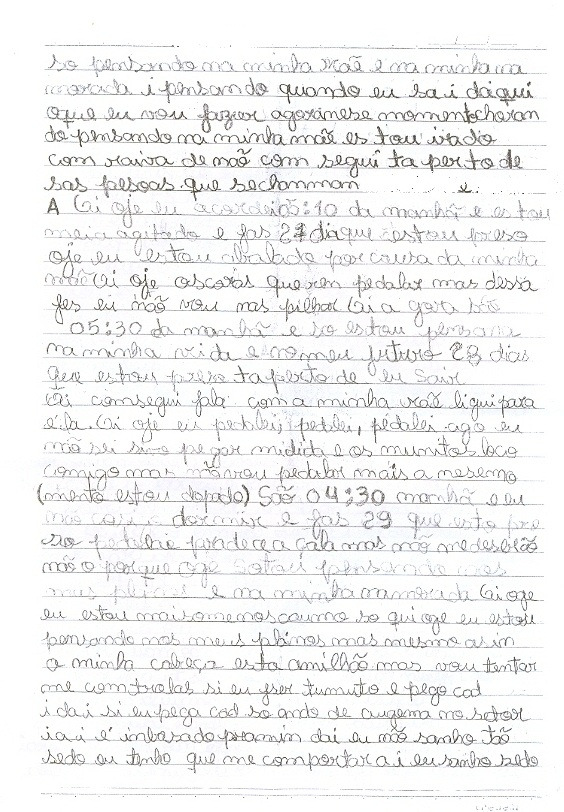 so pensando na minha mãe e na minha na
morada i pensando quando eu sa i daqui
oque eu vou fazver agora nese momento choran
do pensando na minha mãe es tou irado
com raiva de não com segui ta perto de
sas pesoas que se chamam e
A (ai oje eu acordei 5:10 da manhã e estou
meia agitado e fas 27 dia que estou preso
oje eu estou abalado por causa da minha
mãe (ai oje os caras querem pedalar mas dessa
fes eu não vou nas pilhas (ai a gora são
05:30 da manhã e so estou pensana
na minha vida e no meu futuro 28 dias
que estou preso ta perto de eu sair
(ai comsegui fala com a minha mãe ligui para
ela. (ai oje eu pedalei, pedalei, pedalei ago eu
não sei si vo pegar midida e os mumitos loco
comigo mas não vou pedalar mais a mesemo
(mento estou dopado) São 04:30 manhã e eu
não dormir e fas 29 que esto pre
so pedalei para dece a gala mas não me desserão
não o porque oge estou pensando nos
meus planos e na minha namorada (ai oge
eu estou mais omenos caumo so qui oge eu estou
pensando nos meus planos mas mesmo asin
a minha cabeça esta amilhão mas vou tentar
me comtrolar si eu fser tumuto e pego cad
i dai si eu pega cad so ando de augema no setor
i ai é inbasado pra min dai eu não sanho tão
sedo eu tenho que me comportar a i eu sanho sedo